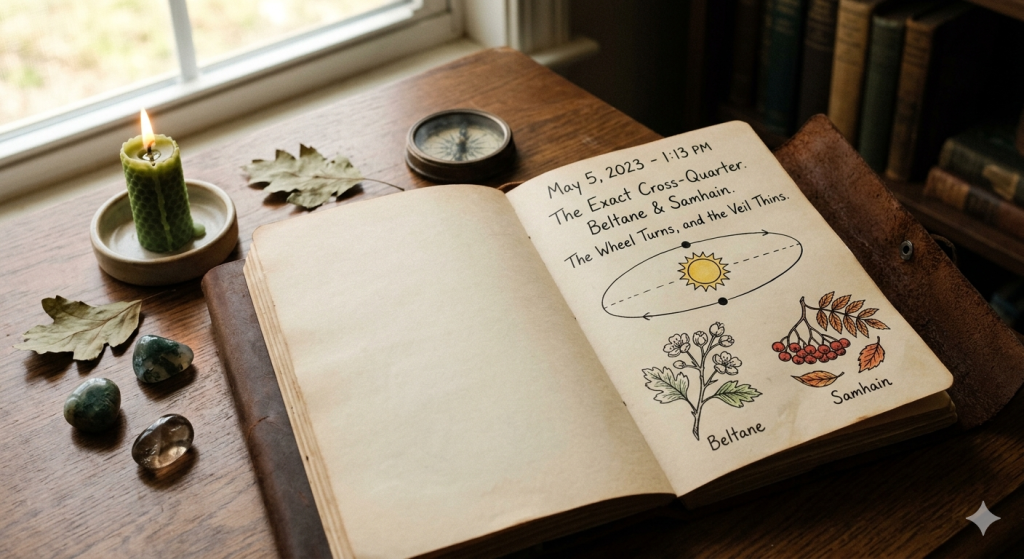 May 5, 2023 - 1:13 PM
The Exact Cross-Quarter.
Beltane & Samhain.
The Wheel Turns, and the Veil Thins.
Beltane
Samhain